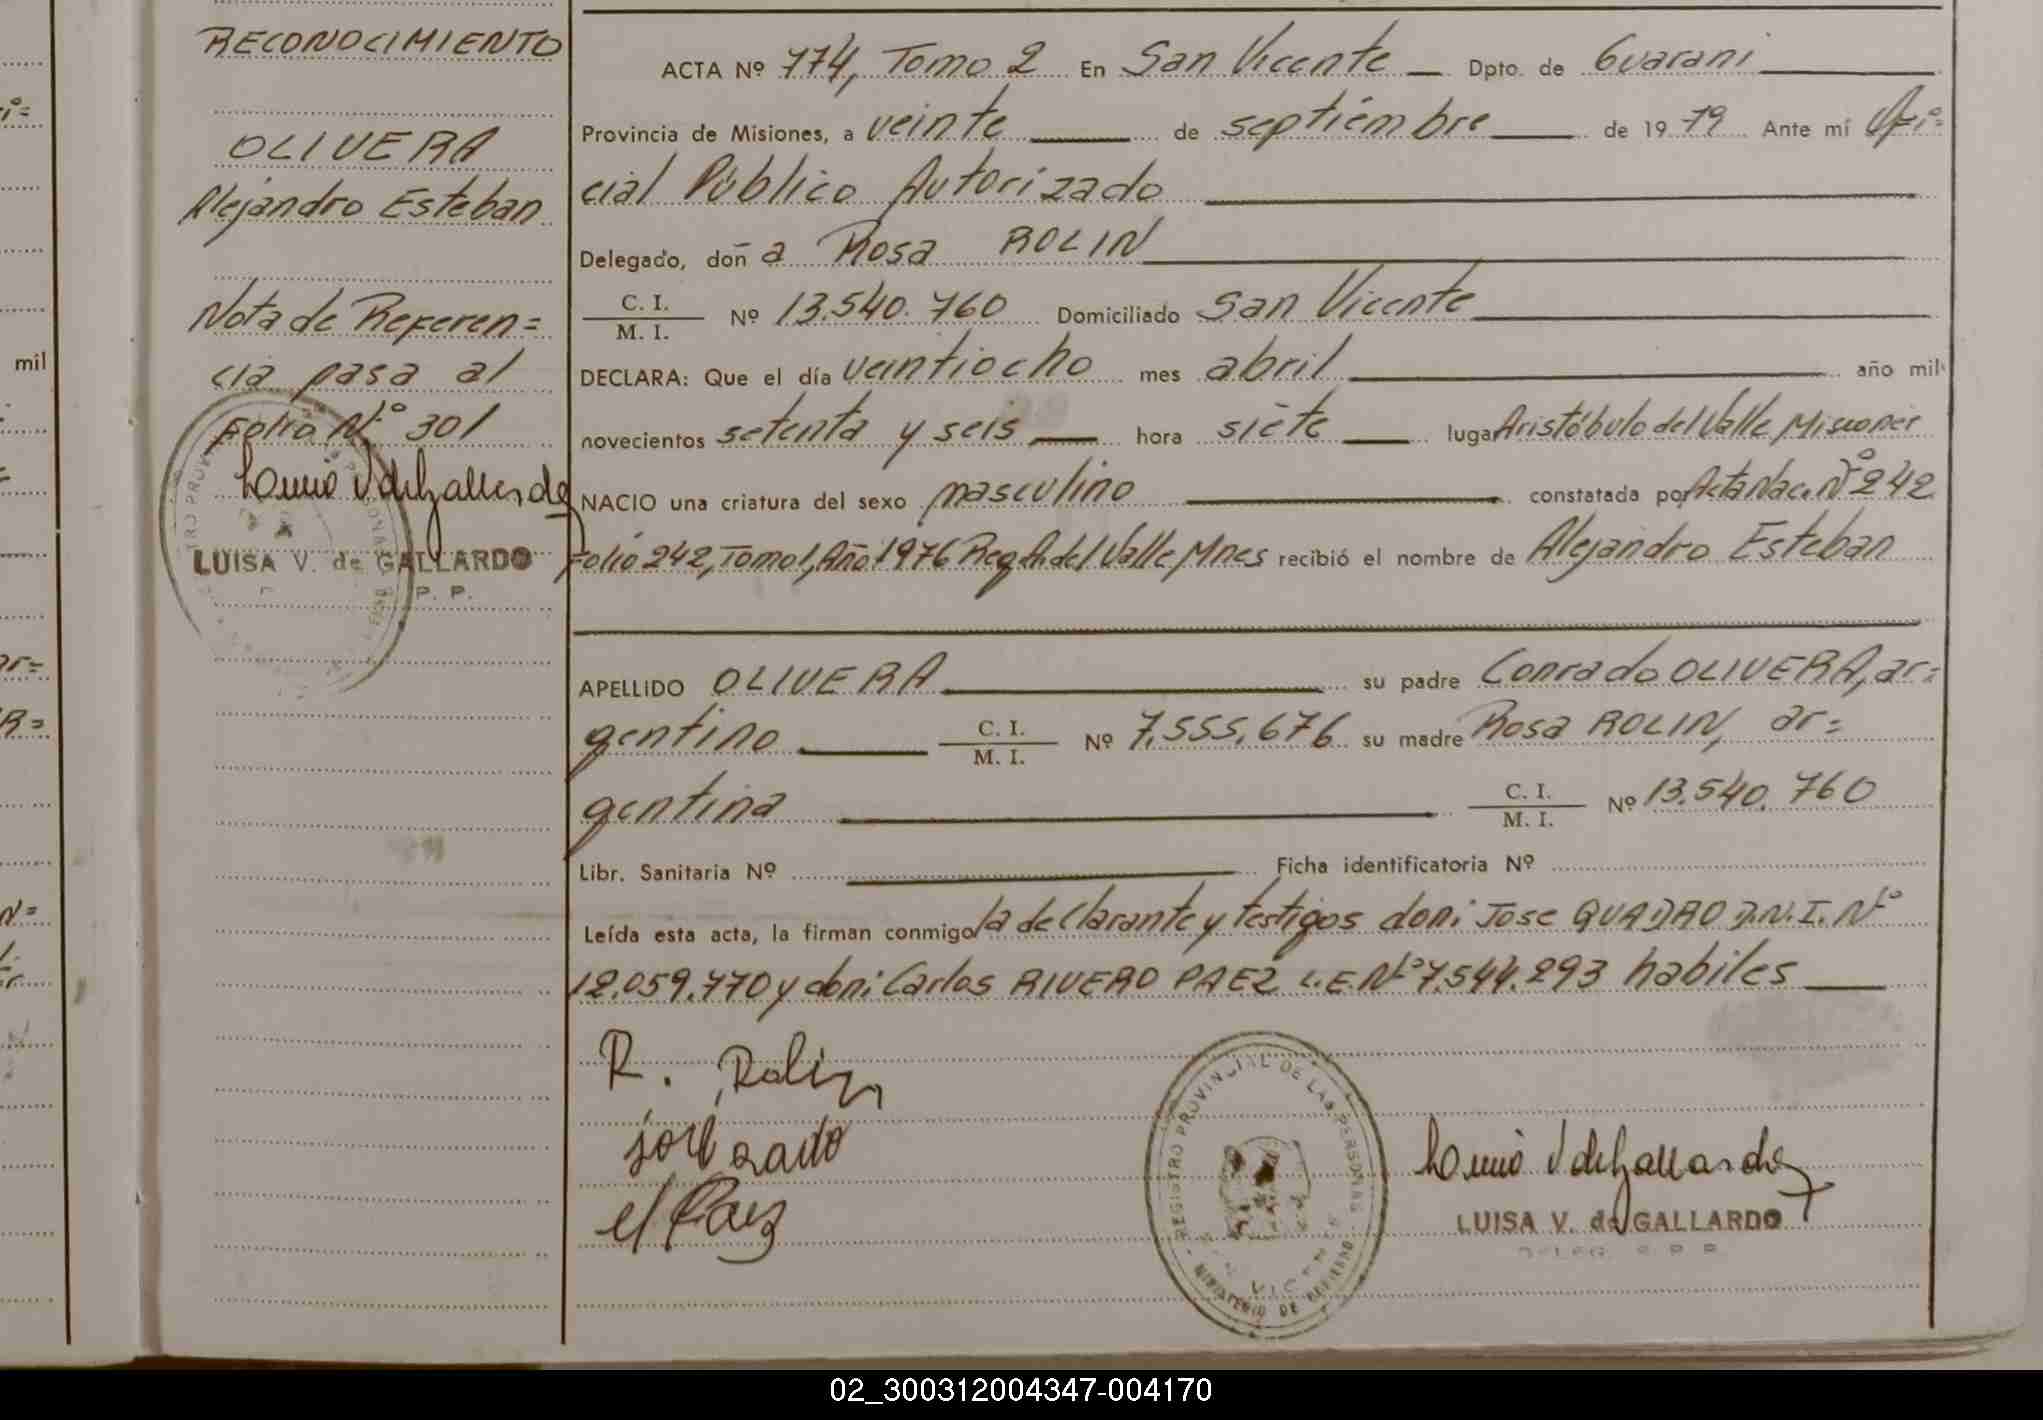 RECONOCIMIENTO
OLIVERA
Alejandro Esteban
Nota de Referen=
cia pasa al
Folio Nº 301
LUISA V. de GALLARDO
P. P.
ACTA Nº 774, Tomo 2 En San Vicente Dpto. de Guarani
Provincia de Misiones, a veinte de septiémbre de 1979 Ante mí Ofi=
cial Público Autorizado
Delegado, doña Rosa ROLIN
C. I.
M. I. Nº 13.540.760 Domiciliado San Vicente
DECLARA: Que el día veintiocho mes abril año mil
novecientos setenta y seis hora siéte lugar Aristóbulo del Valle Misiones
NACIO una criatura del sexo masculino constatada por Acta Nac. Nº 242
Folio 242, Tomo 1, Año 1976 Reg. A. del Valle Mnes recibió el nombre de Alejandro Esteban
APELLIDO OLIVERA su padre Conrado OLIVERA, ar=
gentino C. I.
M. I. Nº 7.555.676 su madre Rosa ROLIN, ar=
gentina C. I.
M. I. Nº 13.540.760
Libr. Sanitaria Nº Ficha identificatoria Nº
Leída esta acta, la firman conmigo la declarante y testigos don: Jose QUADRO D.N.I. Nº
12.059.770 y don: Carlos RIVERO PAEZ L.E. Nº 7.544.293 habiles
R. Rolin
REGISTRO PROVINCIAL DE LAS PERSONAS
MINISTERIO DE GOBIERNO
LUISA V. de GALLARDO
mil
02_300312004347-004170